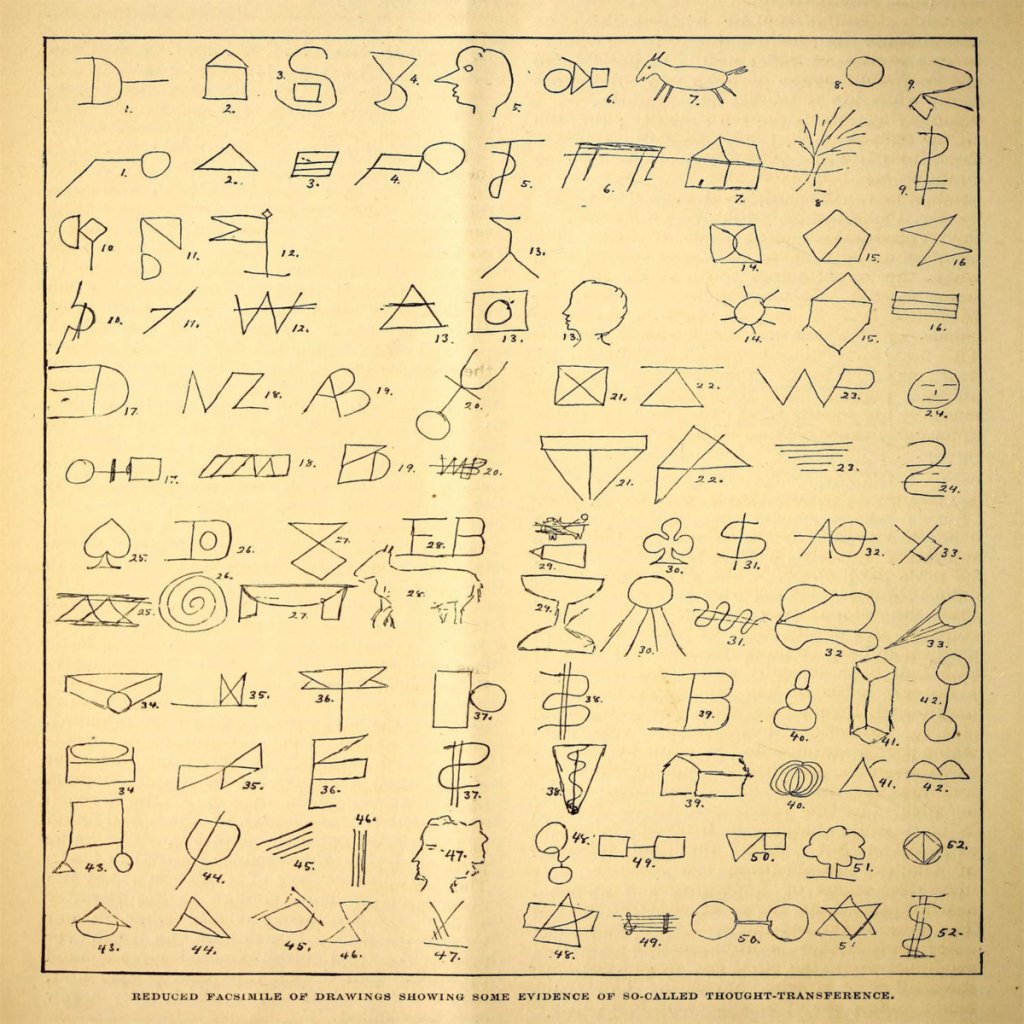 D 1. 2. 3. S 4. 5. 6. 7. 8. 9.
1. 2. 3. 4. 5. 6. 7. 8 9.
10 11. 12. 13. 14. 15. 16
10. 11. W 12. 13. 13. 13. 14. 15. 16.
17. NZ 18. AB 19. 20. 21. 22. WP 23. 24.
17. 18. 19. 20. 21. 22. 23. 24.
25. D 26. 27. EB 28. 29. 30. $ 31. 32. 33.
25. 26. 27. 28. 29. 30. 31. 32 33.
34. 35. 36. 37. 38. B 39. 40. 41. 42.
34 35. 36. 37. 38. 39. 40. 41. 42.
43. 44. 45. 46. 47. 48. 49. 50. 51. 52.
43. 44. 45. 46. 47. 48. 49. 50. 51 52.
REDUCED FACSIMILE OF DRAWINGS SHOWING SOME EVIDENCE OF SO-CALLED THOUGHT-TRANSFERENCE.